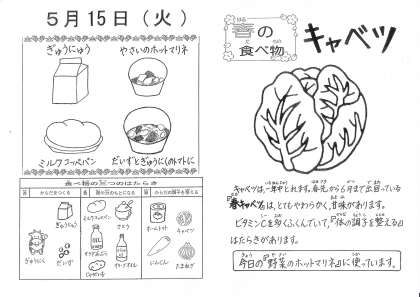 5月15日(火)
ぎゅうにゅう
やさいのホットマリネ
ミルクコッペパン
だいずとぎゅうにくのトマトに
食べ物の三つのはたらき
からだをつくる
熱や力のもとになる
からだの調子を整える
ぎゅうにゅう
ぎゅうにく
だいず
ミルクコッペパン
さとう
じゃがいも
ホールトマト
キャベツ
にんじん
たまねぎ
春の
食べ物
キャベツ
キャベツは、一年中とれます。春先から6月まで出回っている
『春キャベツ』は、とてもやわらかく、甘味があります。
ビタミンCを多くふくんでいて、『体の調子を整える』
はたらきがあります。
今日の『野菜のホットマリネ』に使っています。